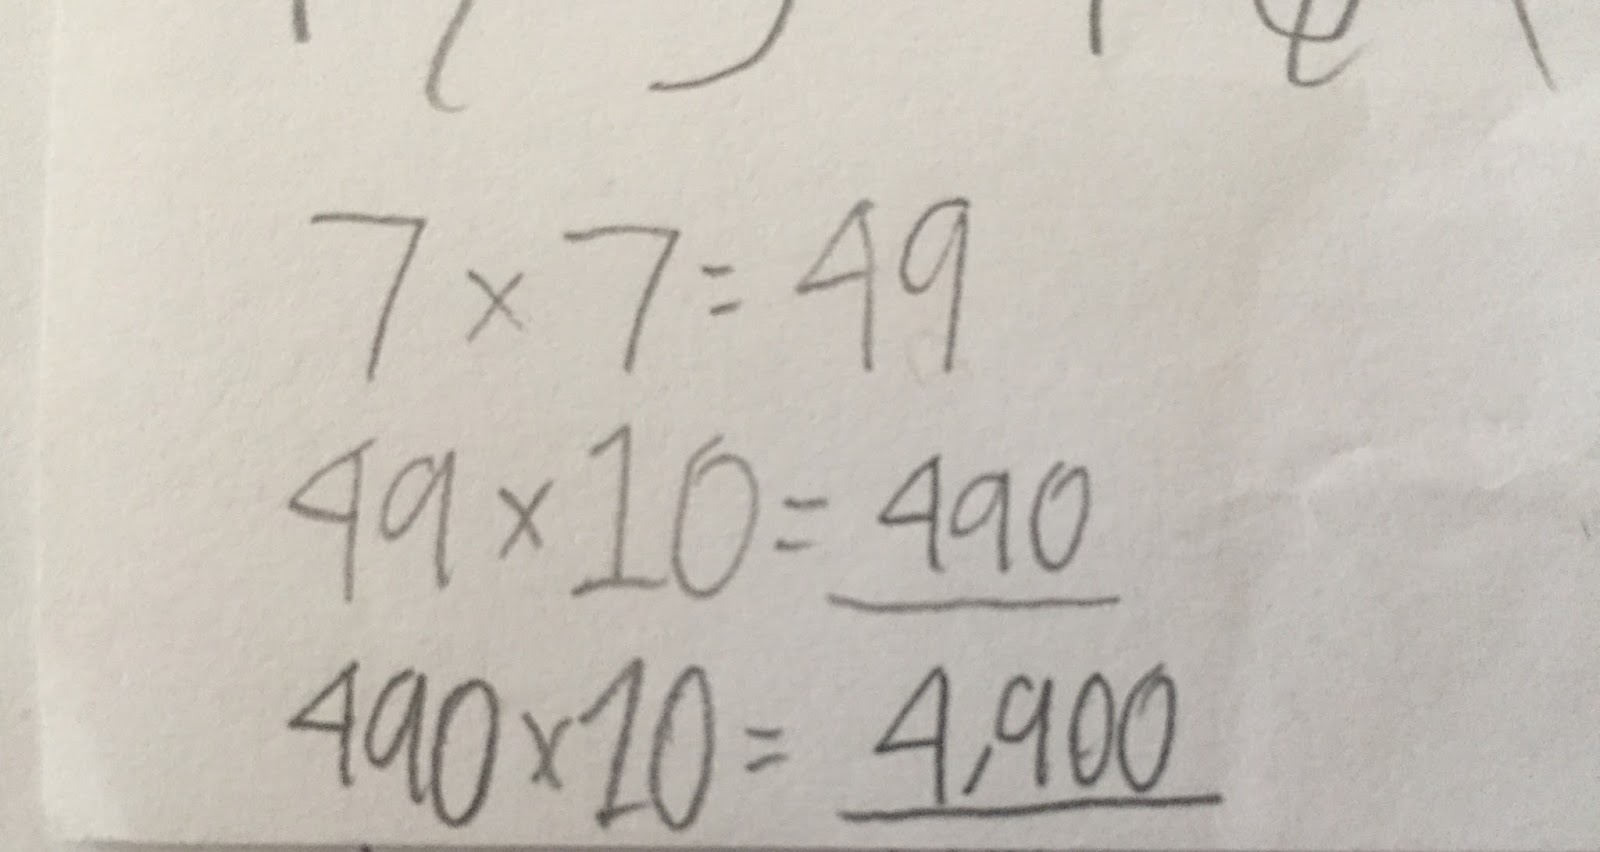 7 x 7 = 49
49 x 10 = 490
490 x 10 = 4,900